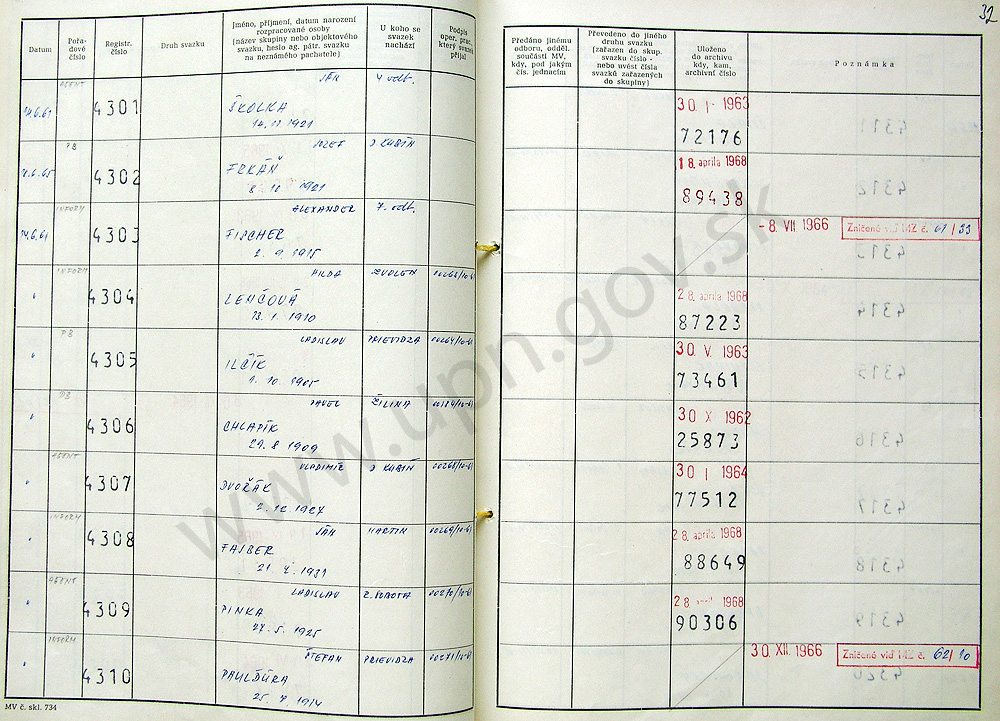 32
Datum
Pořa-
dové
číslo
Registr.
číslo
Druh svazku
Jméno, příjmení, datum narození
rozpracované osoby
(název skupiny nebo objektového
svazku, heslo ag. pátr. svazku
na neznámého pachatele)
U koho se
svazek
nachází
Podpis
oper. prac.,
který svazek
přijal
Předáno jinému
odboru, odděl.
součásti MV,
kdy, pod jakým
čís. jednacím
Převedeno do jiného
druhu svazku
(zařazen do skup.
svazku číslo -
nebo uvést čísla
svazků zařazených
do skupiny)
Uloženo
do archivu
kdy, kam,
archivní číslo
Poznámka
AGENT JÁN 4 odt.
14.6.61 4301 ŠKOLKA 30 I 1963
14. 11 1921 72176
PB JOZEF D KUBÍN
4302 FRKÁŇ 18. apríla 1968
8. 10 1921 89438
INFORM ALEXANDER 7. odt.
14.6.61 4303 FISCHER - 8. VII 1966 Zničené viď MZ č. 61/33
2. 9. 1915
INFORM HILDA ZVOLEN
4304 LENČOVÁ 28. apríla 1968
13. 1. 1910 87223
PB LADISLAV PRIEVIDZA 00264/10-61
4305 ILČÍK 30. V. 1963
1. 10. 1905 73461
PB PAVEL ŽILINA
4306 CHLAPÍK 30 X 1962
29. 8 1909 25873
AGENT VLADIMÍR D KUBÍN 00268/10-61
4307 DVOŘÁK 30 I 1964
2. 12. 1927 77512
INFORM JÁN MARTIN 00269/10-61
4308 FAJBER 28. apríla 1968
88649
AGENT LADISLAV R. SOBOTA 00270/10-61
4309 PINKA 28 apríl 1968
27. 5. 1925 90306
INFORM ŠTEFAN PRIEVIDZA 00271/10-61
4310 PAULĎURA 30. XII. 1966 Zničené viď MZ č. 62/10
25. 7 1914
MV č. skl. 734
www.upn.gov.sk